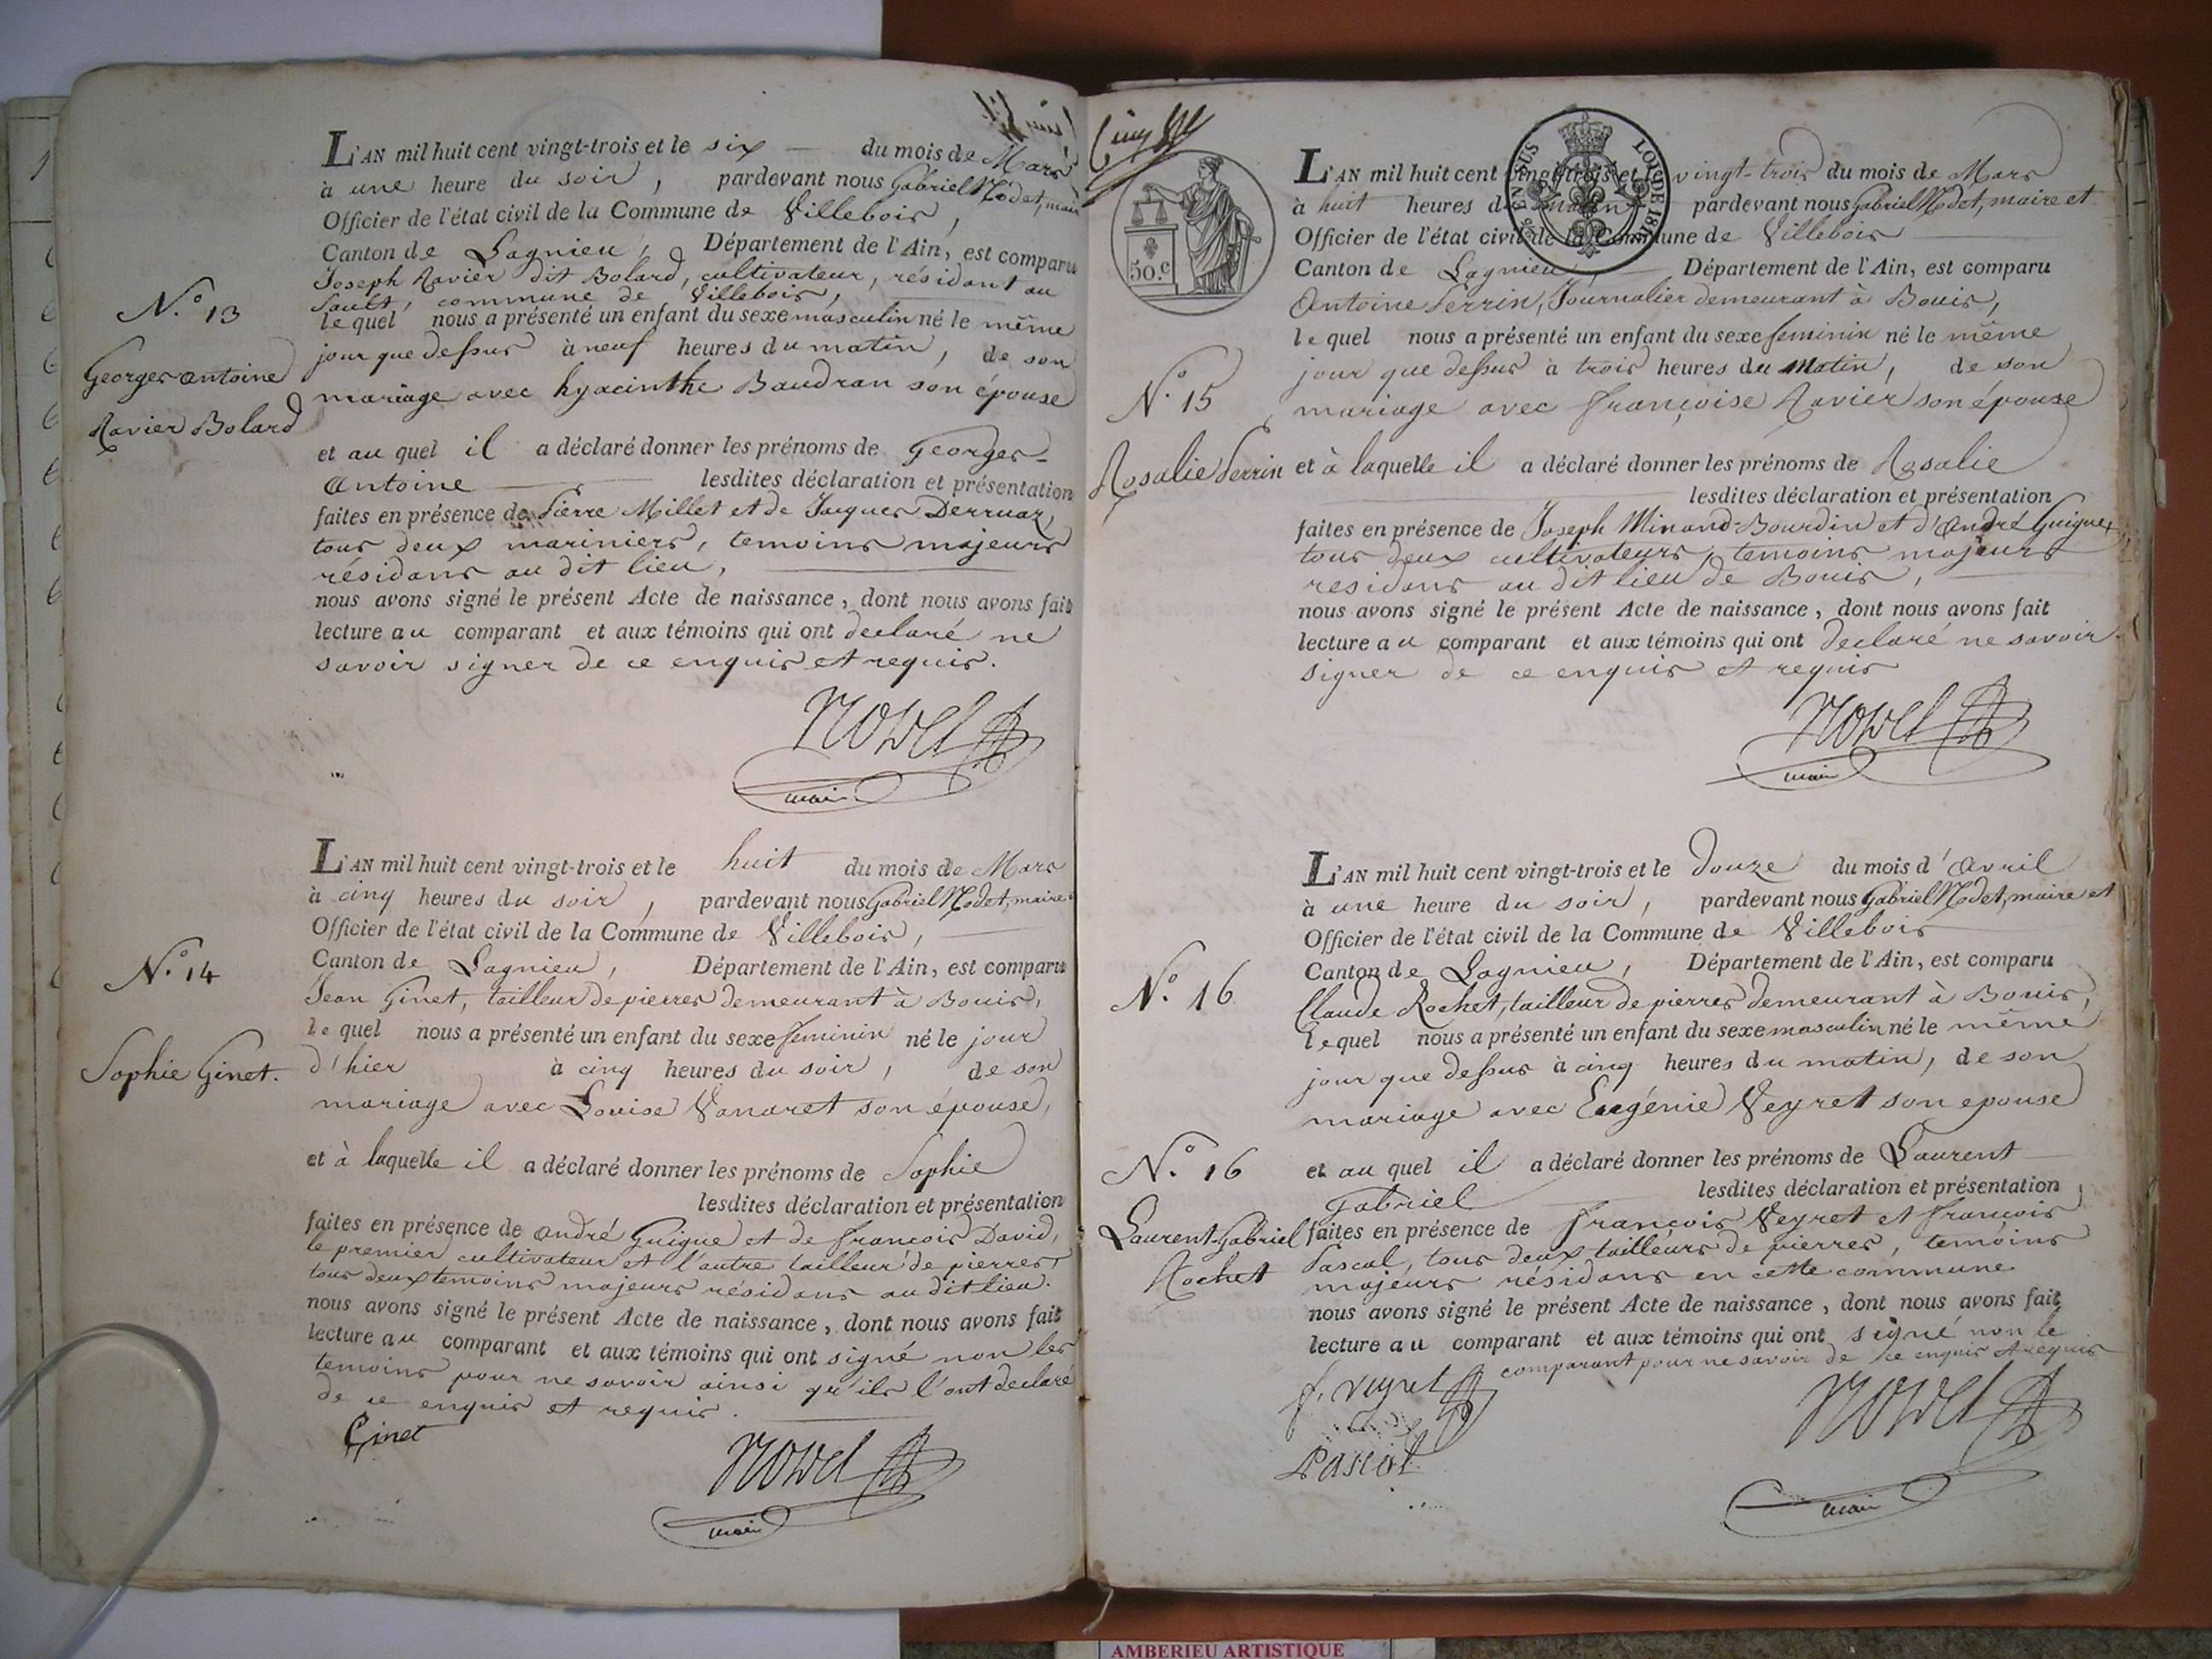 L'AN mil huit cent vingt-trois et le six du mois de Mars
à une heure du soir, pardevant nous Gabriel Nodet, maire
Officier de l'état civil de la Commune de Villebois,
Canton de Lagnieu, Département de l'Ain, est comparu
Joseph Ravier dit Bolard, cultivateur, résidant au
Sault, commune de Villebois,
le quel nous a présenté un enfant du sexe masculin né le même
jour que dessus à neuf heures du matin, de son
mariage avec hyacinthe Baudran son épouse
et au quel il a déclaré donner les prénoms de Georges-
Antoine lesdites déclaration et présentation
faites en présence de Pierre Millet et de Jacques Derruaz,
tous deux mariniers, temoins majeurs
résidans au dit lieu,
nous avons signé le présent Acte de naissance, dont nous avons fait
lecture au comparant et aux témoins qui ont declaré ne
savoir signer de ce enquis et requis.
N.º 13
Georges antoine
Ravier Bolard
maire
L'AN mil huit cent vingt-trois et le huit du mois de Mars
à cinq heures du soir, pardevant nous Gabriel Nodet, maire
Officier de l'état civil de la Commune de Villebois,
Canton de Lagnieu, Département de l'Ain, est comparu
Jean Ginet, tailleur de pierres demeurant à Bouis,
le quel nous a présenté un enfant du sexe feminin né le jour
d'hier à cinq heures du soir, de son
mariage avec Louise Vanaret son épouse,
et à laquelle il a déclaré donner les prénoms de Sophie
lesdites déclaration et présentation
faites en présence de andré Guigue et de francois David,
le premier cultivateur et l'autre tailleur de pierres,
tous deux temoins majeurs résidans au dit lieu.
nous avons signé le présent Acte de naissance, dont nous avons fait
lecture au comparant et aux témoins qui ont signé non les
temoins pour ne savoir ainsi qu'ils l'ont declaré
de ce enquis et requis.
N.º 14
Sophie Ginet.
Ginet
maire
50.c
L'AN mil huit cent vingt-trois et le vingt-trois du mois de Mars
à huit heures du matin pardevant nous Gabriel Nodet, maire et
Officier de l'état civil de la Commune de Villebois
Canton de Lagnieu, Département de l'Ain, est comparu
Antoine Perrin, Journalier demeurant à Bouis,
le quel nous a présenté un enfant du sexe feminin né le même
jour que dessus à trois heures du matin, de son
mariage avec françoise Ravier son épouse
et à laquelle il a déclaré donner les prénoms de Rosalie
lesdites déclaration et présentation
faites en présence de Joseph Minand-Bourdin et d'André Guigue,
tous deux cultivateurs, temoins majeurs
residans au dit lieu de Bouis,
nous avons signé le présent Acte de naissance, dont nous avons fait
lecture au comparant et aux témoins qui ont declaré ne savoir
signer de ce enquis et requis
N.º 15
Rosalie Perrin
maire
L'AN mil huit cent vingt-trois et le douze du mois d'Avril
à une heure du soir, pardevant nous Gabriel Nodet, maire et
Officier de l'état civil de la Commune de Villebois
Canton de Lagnieu, Département de l'Ain, est comparu
Claude Rochet, tailleur de pierres demeurant à Bouis,
lequel nous a présenté un enfant du sexe masculin né le même
jour que dessus à cinq heures du matin, de son
mariage avec Eugénie Veyret son epouse
et au quel il a déclaré donner les prénoms de Laurent
Gabriel lesdites déclaration et présentation
faites en présence de françois Veyret et françois
Pascal, tous deux tailleurs de pierres, temoins
majeurs résidans en cette commune
nous avons signé le présent Acte de naissance, dont nous avons fait
lecture au comparant et aux témoins qui ont signé non le
comparant pour ne savoir de ce enquis et requis
N.º 16
N.º 16
Laurent-Gabriel
Rochet
f. veyret
Pascal
maire
AMBERIEU ARTISTIQUE